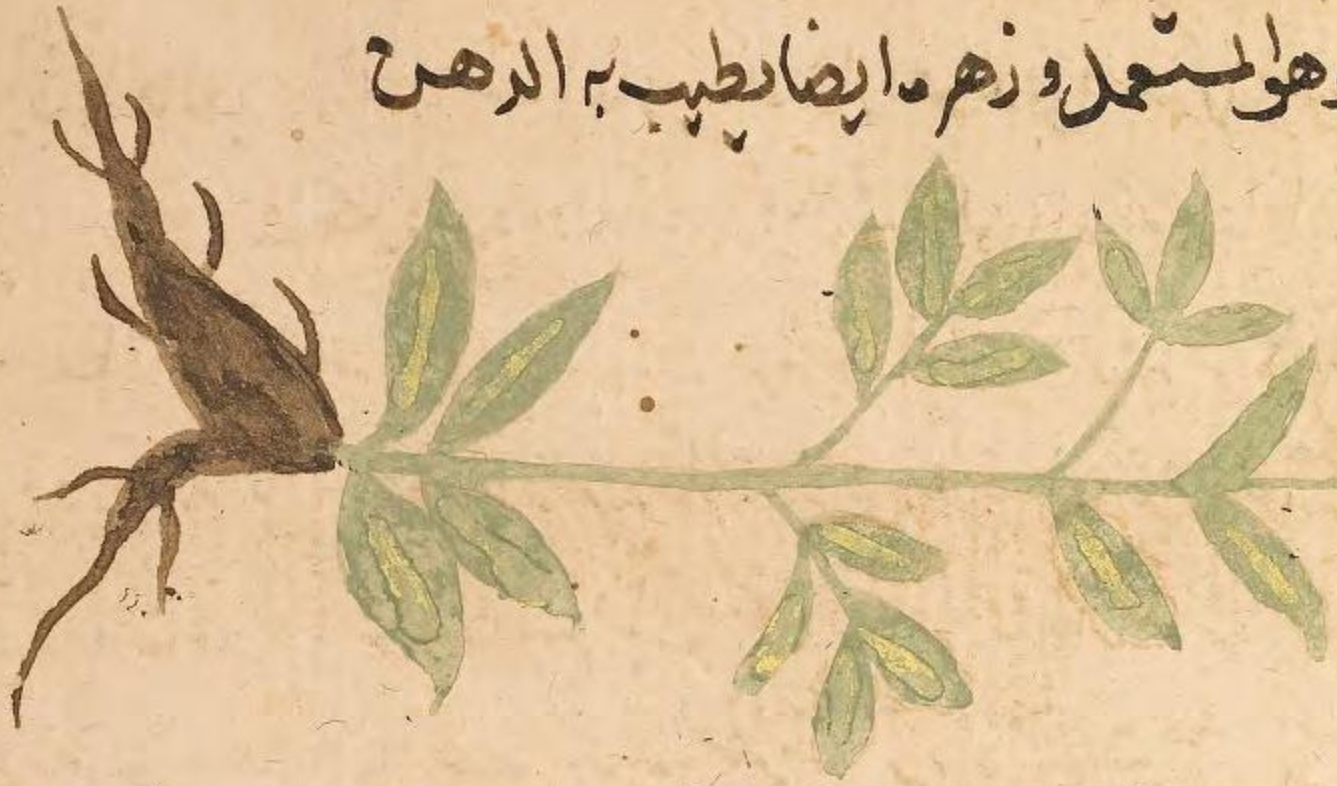 وهو المستعمل و زهره ايضا يطيب به الدهن